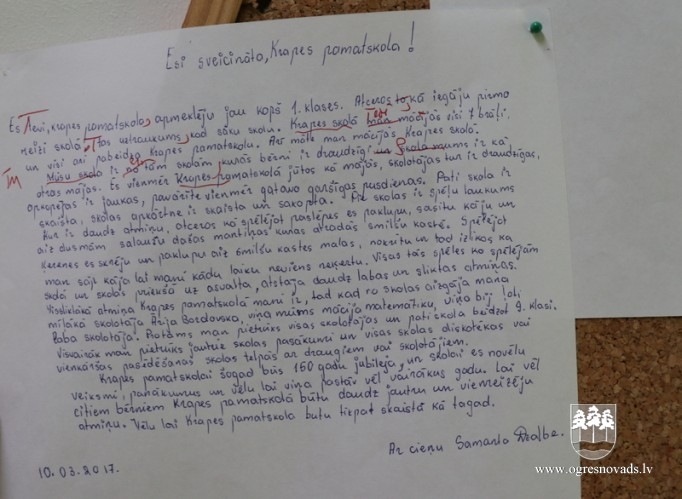 Esi sveicināta, Krapes pamatskola!
Es Tevi, Krapes pamatskola, apmeklēju jau kopš 1. klases. Atceros to, kā iegāju pirmo
reizi skolā. Tas uztraukums, kad sāku skolu. Krapes skolā mācījās visi 7 brāļi,
un visi arī pabeidza Krapes pamatskolu. Arī māte man mācījās Krapes skolā.
Mūsu skola ir no tām skolām, kurās bērni ir draudzīgi un skola mums ir kā
otras mājas. Es vienmēr Krapes pamatskolā jūtos kā mājās, skolotājas tur ir draudzīgas,
apkopējas ir jaukas, pavārīte vienmēr gatavo garšīgas pusdienas. Pati skola ir
skaista, skolas apkārtne ir skaista un sakopta. Pie skolas ir spēļu laukums
kur ir daudz atmiņu, atceros kā spēlējot paslēpes es paklupu, sasitu kāju un
aiz dusmām salauzu dažas mantiņas kuras atradās smilšu kastē. Spēlējot
ķerenes es skrēju un paklupu aiz smilšu kastes malas, nokritu un tad izlikos ka
man sāp kāja lai mani kādu laiku neviens neķertu. Visas tās spēles ko spēlējām
skolā un skolas priekšā uz asvalta, atstāja daudz labas un sliktas atmiņas.
Vissliktākā atmiņa Krapes pamatskolā mani ir, tad kad no skolas aizgāja mana
mīļākā skolotāja Arija Bozdovska, viņa mums mācīja matemātiku, viņa bij ļoti
laba skolotāja. Protams man pietrūks visas skolotājas un pati skola beidzot 9. klasi.
Visvairāk man pietrūks jautrie skolas pasākumi un visas skolas diskotēkas vai
vienkāršas pasēdēšanas skolas telpās ar draugiem vai skolotājiem.
Krapes pamatskolai šogad būs 150 gadu jubileja, un skolai es novēlu
veiksmi, panākumus un vēlu lai viņa pastāv vēl vairākus gadu. Lai vēl
citiem bērniem Krapes pamatskolā būtu daudz jautru un vienreizēju
atmiņu. Vēlu lai Krapes pamatskola butu tikpat skaistā kā tagad.
Ar cieņu Samanta
10.03.2017.
www.ogresnovads.lv